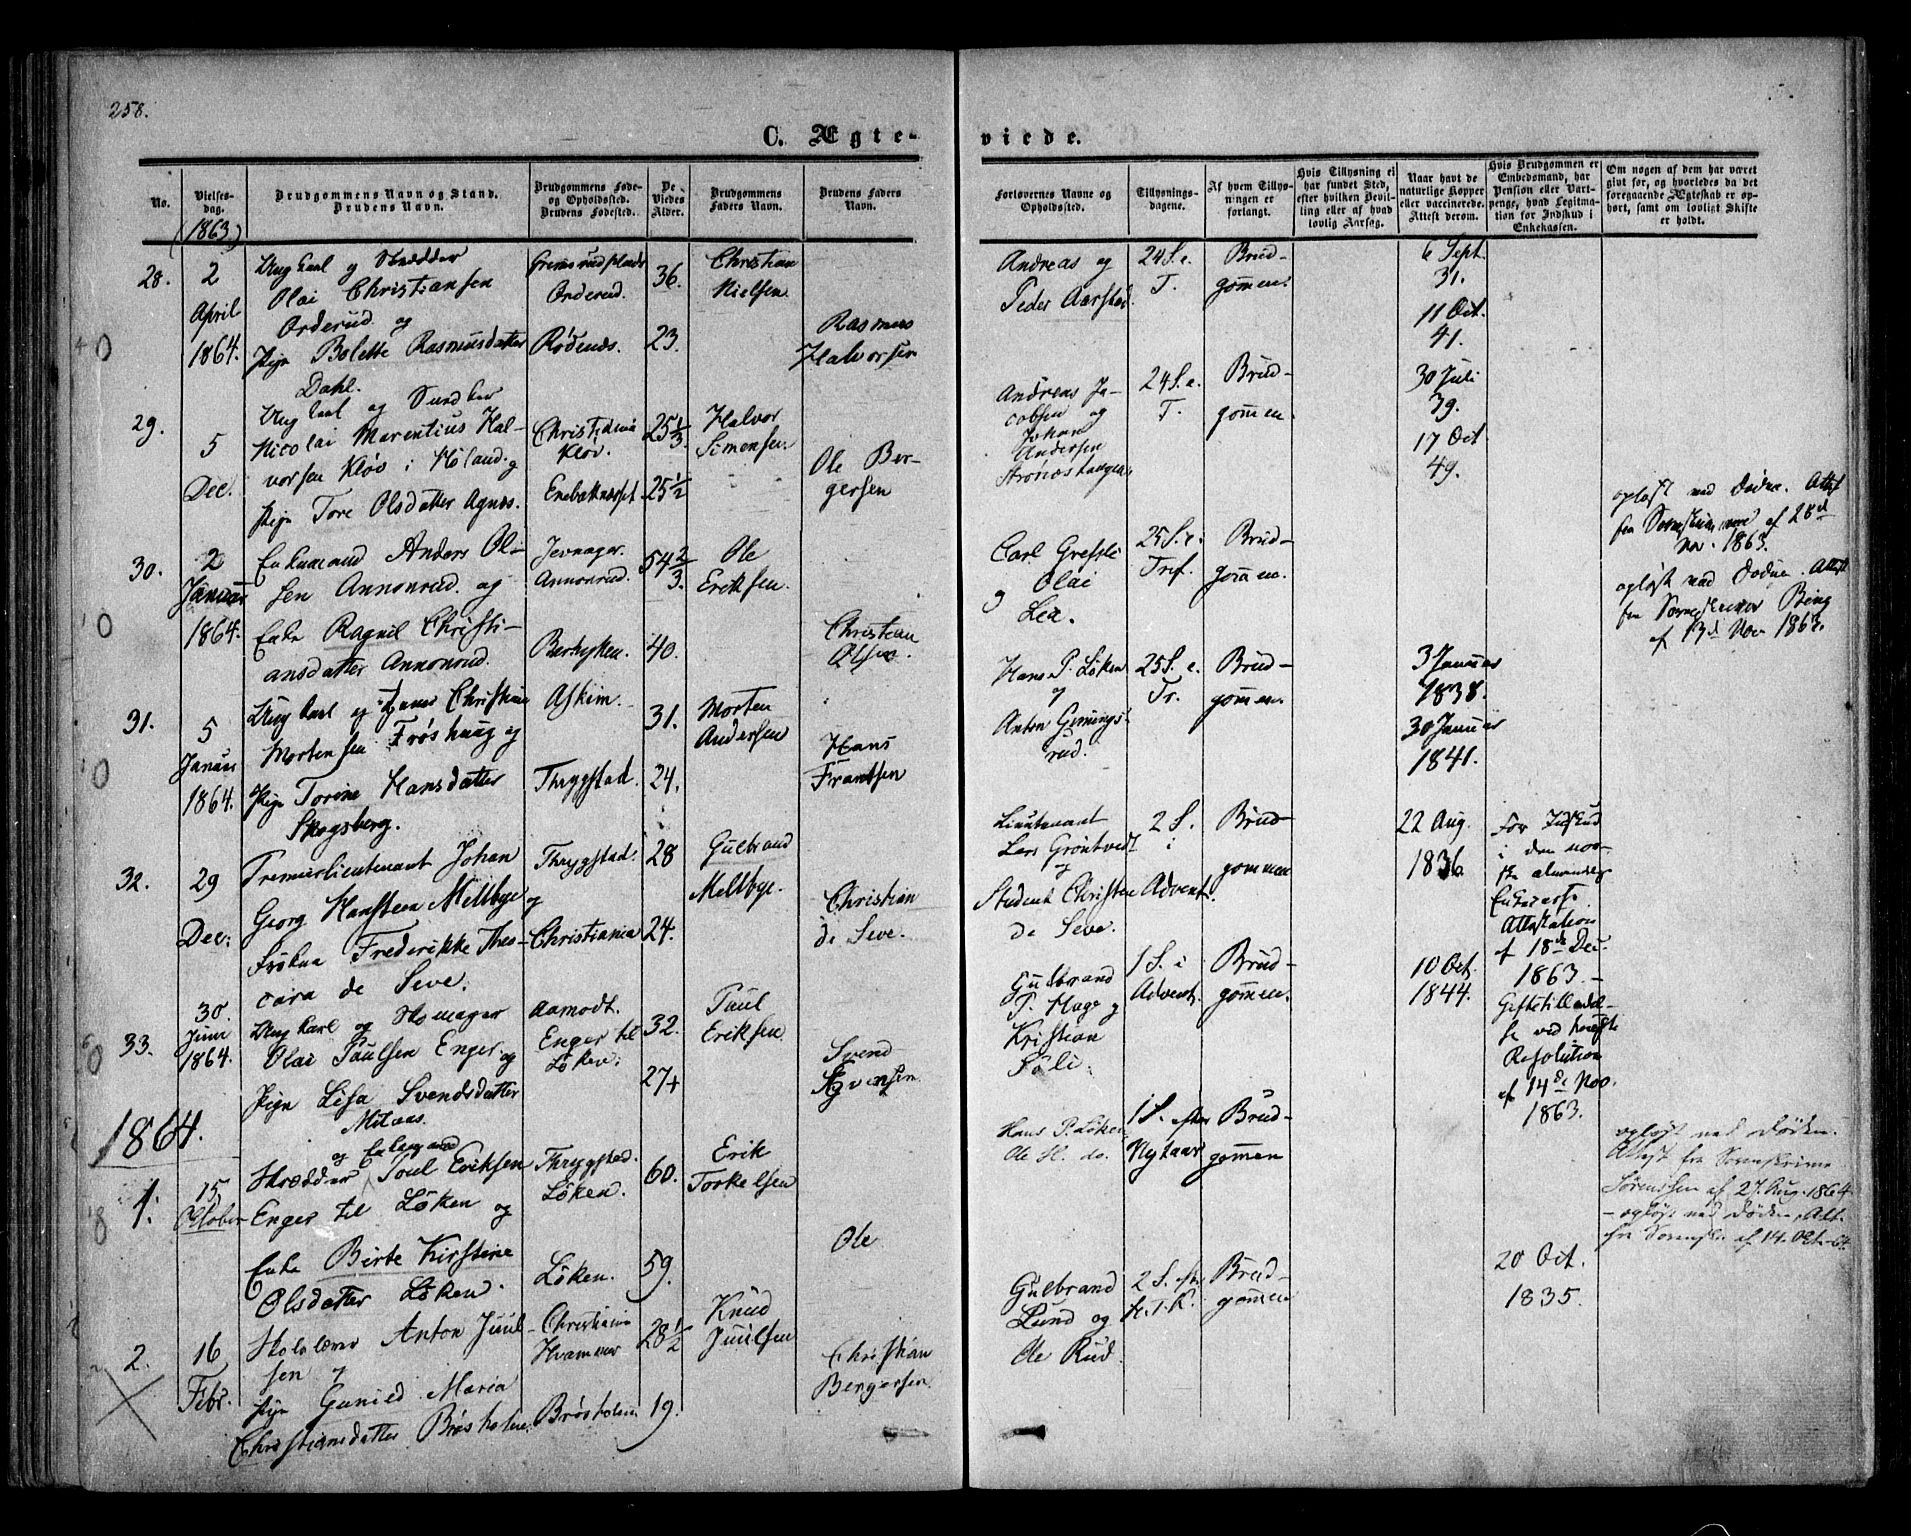 258.
C. Ægte-
viede.
No.
Vielses-
dag.
Brudgommens Navn og Stand.
Brudens Navn.
Brudgommens Føde-
og Opholdssted.
Brudens Fødested.
De
Viedes
Alder.
Brudgommens
Faders Navn.
Brudens Faders
Navn.
Forlovernes Navne og
Opholdssted.
Tillysnings-
dagene.
Af hvem Tillys-
ningen er
forlangt.
Hvis Tillysning ei
har fundet Sted,
efter hvilken Bevil-
ling eller af hvad
lovlig Aarsag.
Naar havt de
naturlige Kopper
eller vaccinerede.
Attest derom.
Hvis Brudgommen er
Embedsmand, har
Pension eller Vart-
penge, hvad Legitima-
tion for Indskud i
Enkekassen.
Om nogen af dem har været
givt før, og hvorledes da det
foregaaende Ægteskab er op-
hørt, samt om lovligt Skifte
er holdt.
(1863)
28.
2
April
1864.
Ungkarl og Skrædder
Olai Christiansen
Orderud og
Pige Bolette Rasmusdatter
Dahl.
Orderud.
Rødenæs.
36.
23.
Christian
Nielsen.
Rasmus
Halvorsen
Andreas og
Peder Aarstad.
24 S. e.
T.
Brud-
gommen.
6 Sept.
31.
11 Oct.
41.
29.
5
Dec.
Ungkarl og
Nicolai Marentius Hal-
vorsen Kløv i Høland og
Pige Tore Olsdatter Agnæs.
Christiania
Kløv.
25 1/3
25 1/2
Halvor
Simensen.
Ole Ber-
gersen
Andreas Ja-
cobsen og
Johan
Andersen
24 S. e.
T.
Brud-
gommen.
30 Juli
39.
17 Oct
49.
30.
2
Januar
1864.
Enkemand Anders Ol-
sen Annonrud og
Enke Ragnil Christi-
ansdatter Annonrud.
Jevnager.
Annonrud.
54 2/3.
40.
Ole
Eriksen.
Christian
Olsen.
Carl Grefsli
og Olai
Lea.
25 S. e.
Tref.
Brud-
gommen.
opløst ved Døden. Attest
fra Sorenskriveren af 28de
Nov. 1863.
opløst ved Døden. Attest
fra Sorenskriver Bing
af 13de Nov 1863.
31.
5
Januar
1864.
Ungkarl og Hans Christian
Mortensen Frøshaug og
Pige Torine Hansdatter
Skogsberg.
Askim.
Thrygstad.
31.
24.
Morten
Andersen
Hans
Frantsen
Hans P. Løken
og
Anton Gimings-
rud.
25 S. e.
Tr.
Brud-
gommen.
3 Januar
1838.
30 Januar
1841.
32.
29
Dec.
Premierlieutenant Johan
Georg Hansteen Meltbye og
Frøken Frederikke Theo-
cara de Seve.
Thrygstad.
Christiania
28
24.
Gulbrand
Meltbye.
Christian
de Seve.
Lieutenant
Lars Grøntvedt
og
Student Christen
de Seve.
2 S.
i
Advent.
Brud-
gommen
22 Aug.
1836.
For Indskud
i den nor-
ske almindelige
Enkekasse
Attestation
af 18de Dec.
1863. -
Giftetilladel-
se ved høieste
Resolution
af 14de Nov.
1863.
33.
30.
Juni
1864.
Ungkarl og Skomager
Olai Paulsen Enger og
Pige Lisa Svendsdatter
Aamodt.
Enger til
Løken.
32.
27+
Paul
Eriksen.
Svend
Gulbrand
P. Hage og
Kristian
Føli.
1 S. i
Advent.
Brud-
gommen.
10 Oct.
1844.
1864.
1.
15
October
og Enkemand
Skrædder Poul Eriksen
Enger til Løken og
Enke Birte Kirstine
Olsdatter Løken.
Thrygstad.
Løken.
Løken.
60.
59.
Erik
Torkelsen
Ole
Hans P. Løken
Ole H. do.
1 S. efter
Nytaar
Brud-
gommen
opløst ved Døden.
Attest fra Sorenskriver
Sørenssen af 27. Aug. 1864
- opløst ved Døden, Att.
fra Sorenskr. af 14. Oct. 64.
2.
16
Febr.
Skolelærer Anton Juul-
sen og
Pige Gunild Maria
Christiansdatter Brøsholen.
Christiania
Brøsholen
28 1/2
19.
Knud
Juulsen
Christian
Bergersen.
Gulbrand
Lund og
Ole Rud.
2 S. eft.
H. T. K.
Brud-
gommen
20 Oct.
1835.